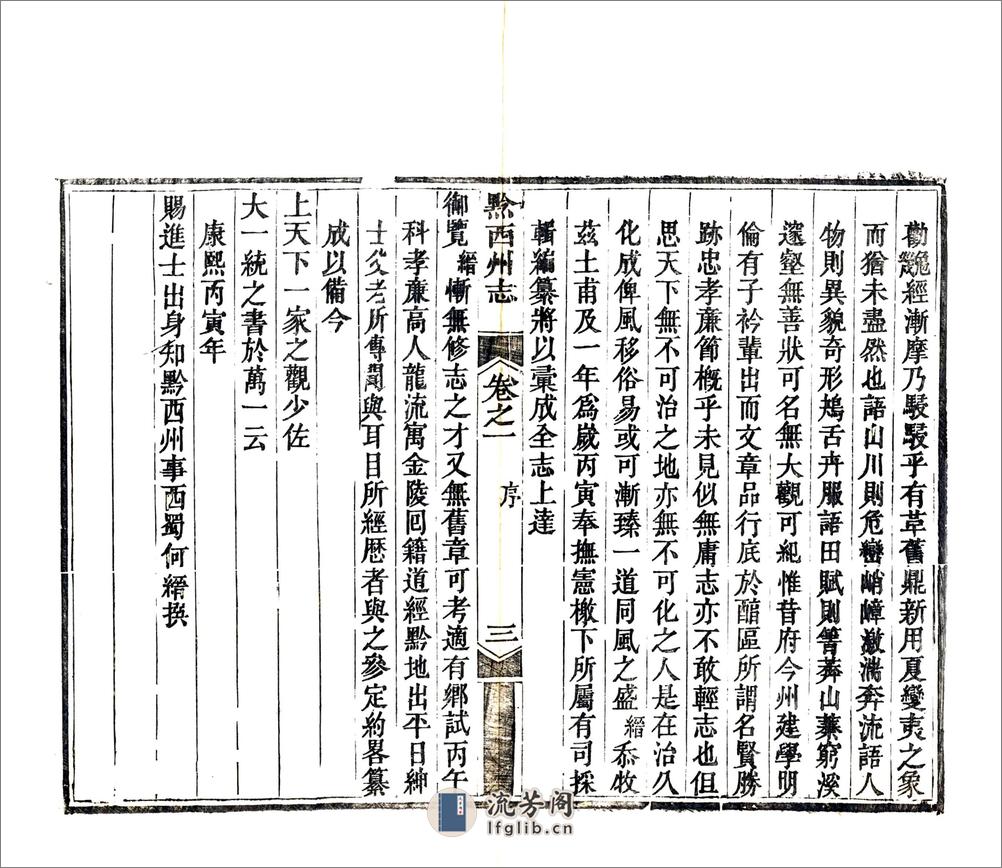 勸㿝經漸摩乃駸駸乎有革舊鼎新用夏變夷之象
而猶未盡然也語山川則危巒峭嶂激湍奔流語人
物則異貌奇形鴂舌卉服語田賦則箐莽山菁窮溪
邃壑無善狀可名無大觀可紀惟昔府今州建學明
倫有子衿輩出而文章品行底於醇區所謂名賢勝
跡忠孝廉節概乎未見似無庸志亦不敢輕志也但
思天下無不可治之地亦無不可化之人是在治久
化成俾風移俗易或可漸臻一道同風之盛縉忝牧
茲土甫及一年為歲丙寅奉撫憲檄下所屬有司採
輯編纂將以彙成全志上達
黔西州志 卷之一 序 三
御覽縉慚無修志之才又無舊章可考適有鄉試丙午
科孝廉高人龍流寓金陵回籍道經黔地出平日紳
士父老所傳聞與耳目所經歷者與之參定約畧纂
成以備今
上天下一家之觀少佐
大一統之書於萬一云
康熙丙寅年
賜進士出身知黔西州事西蜀何縉撰
流芳阁
lfglib.cn